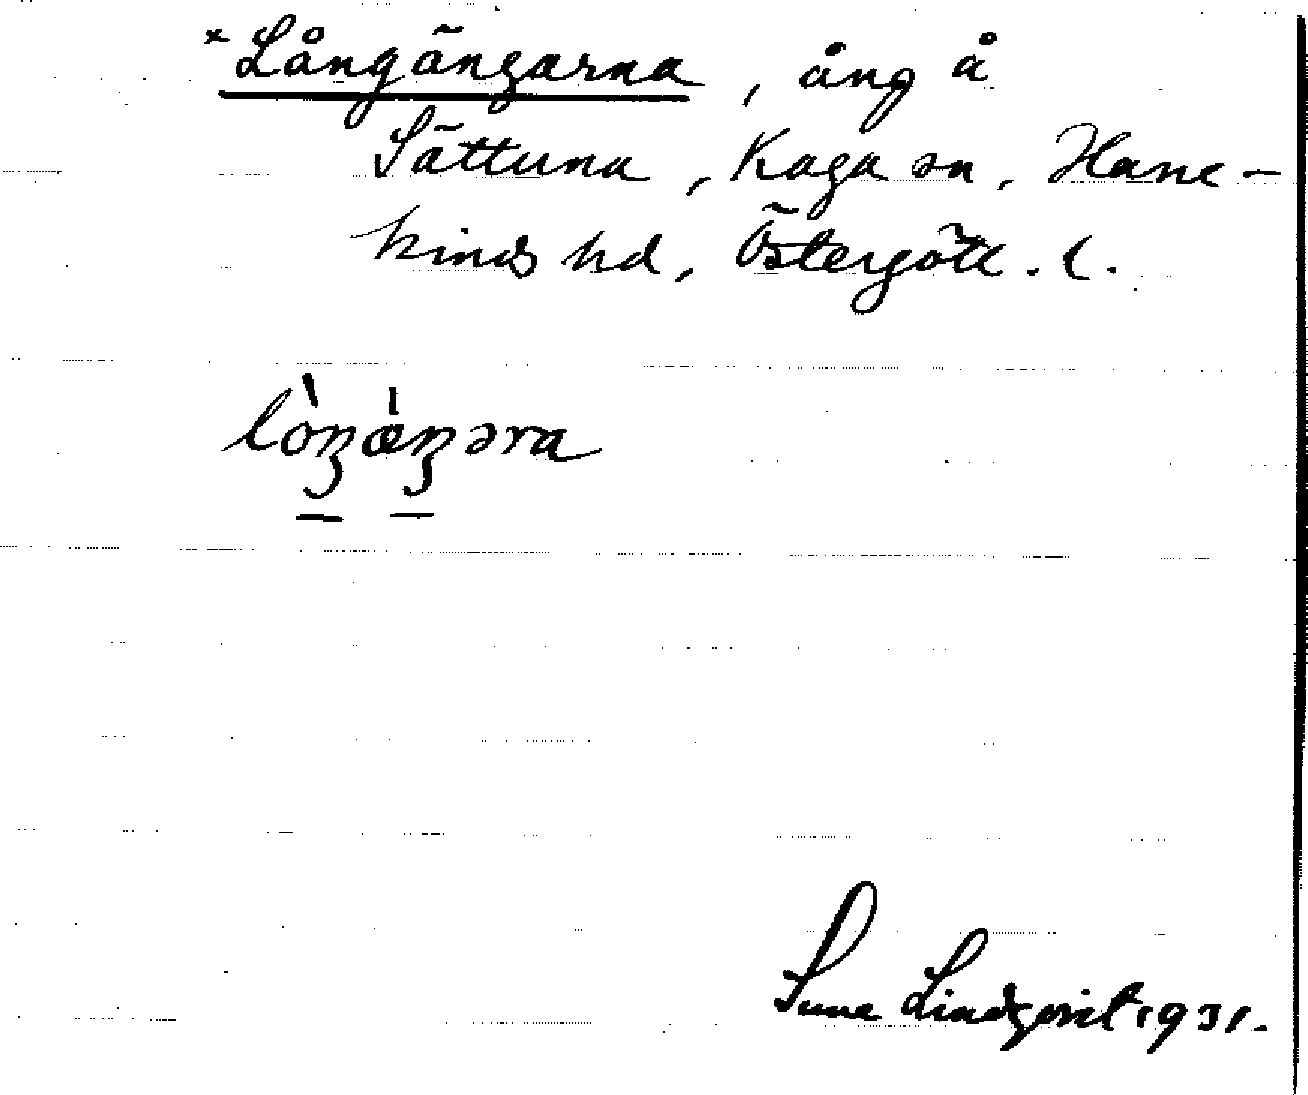 × Långängarna, äng å
Sättuna, Kaga sn, Hane-
kinds hd, Östergötl. l.
lòŋǽŋəra
Sune Lindqvist 1931.